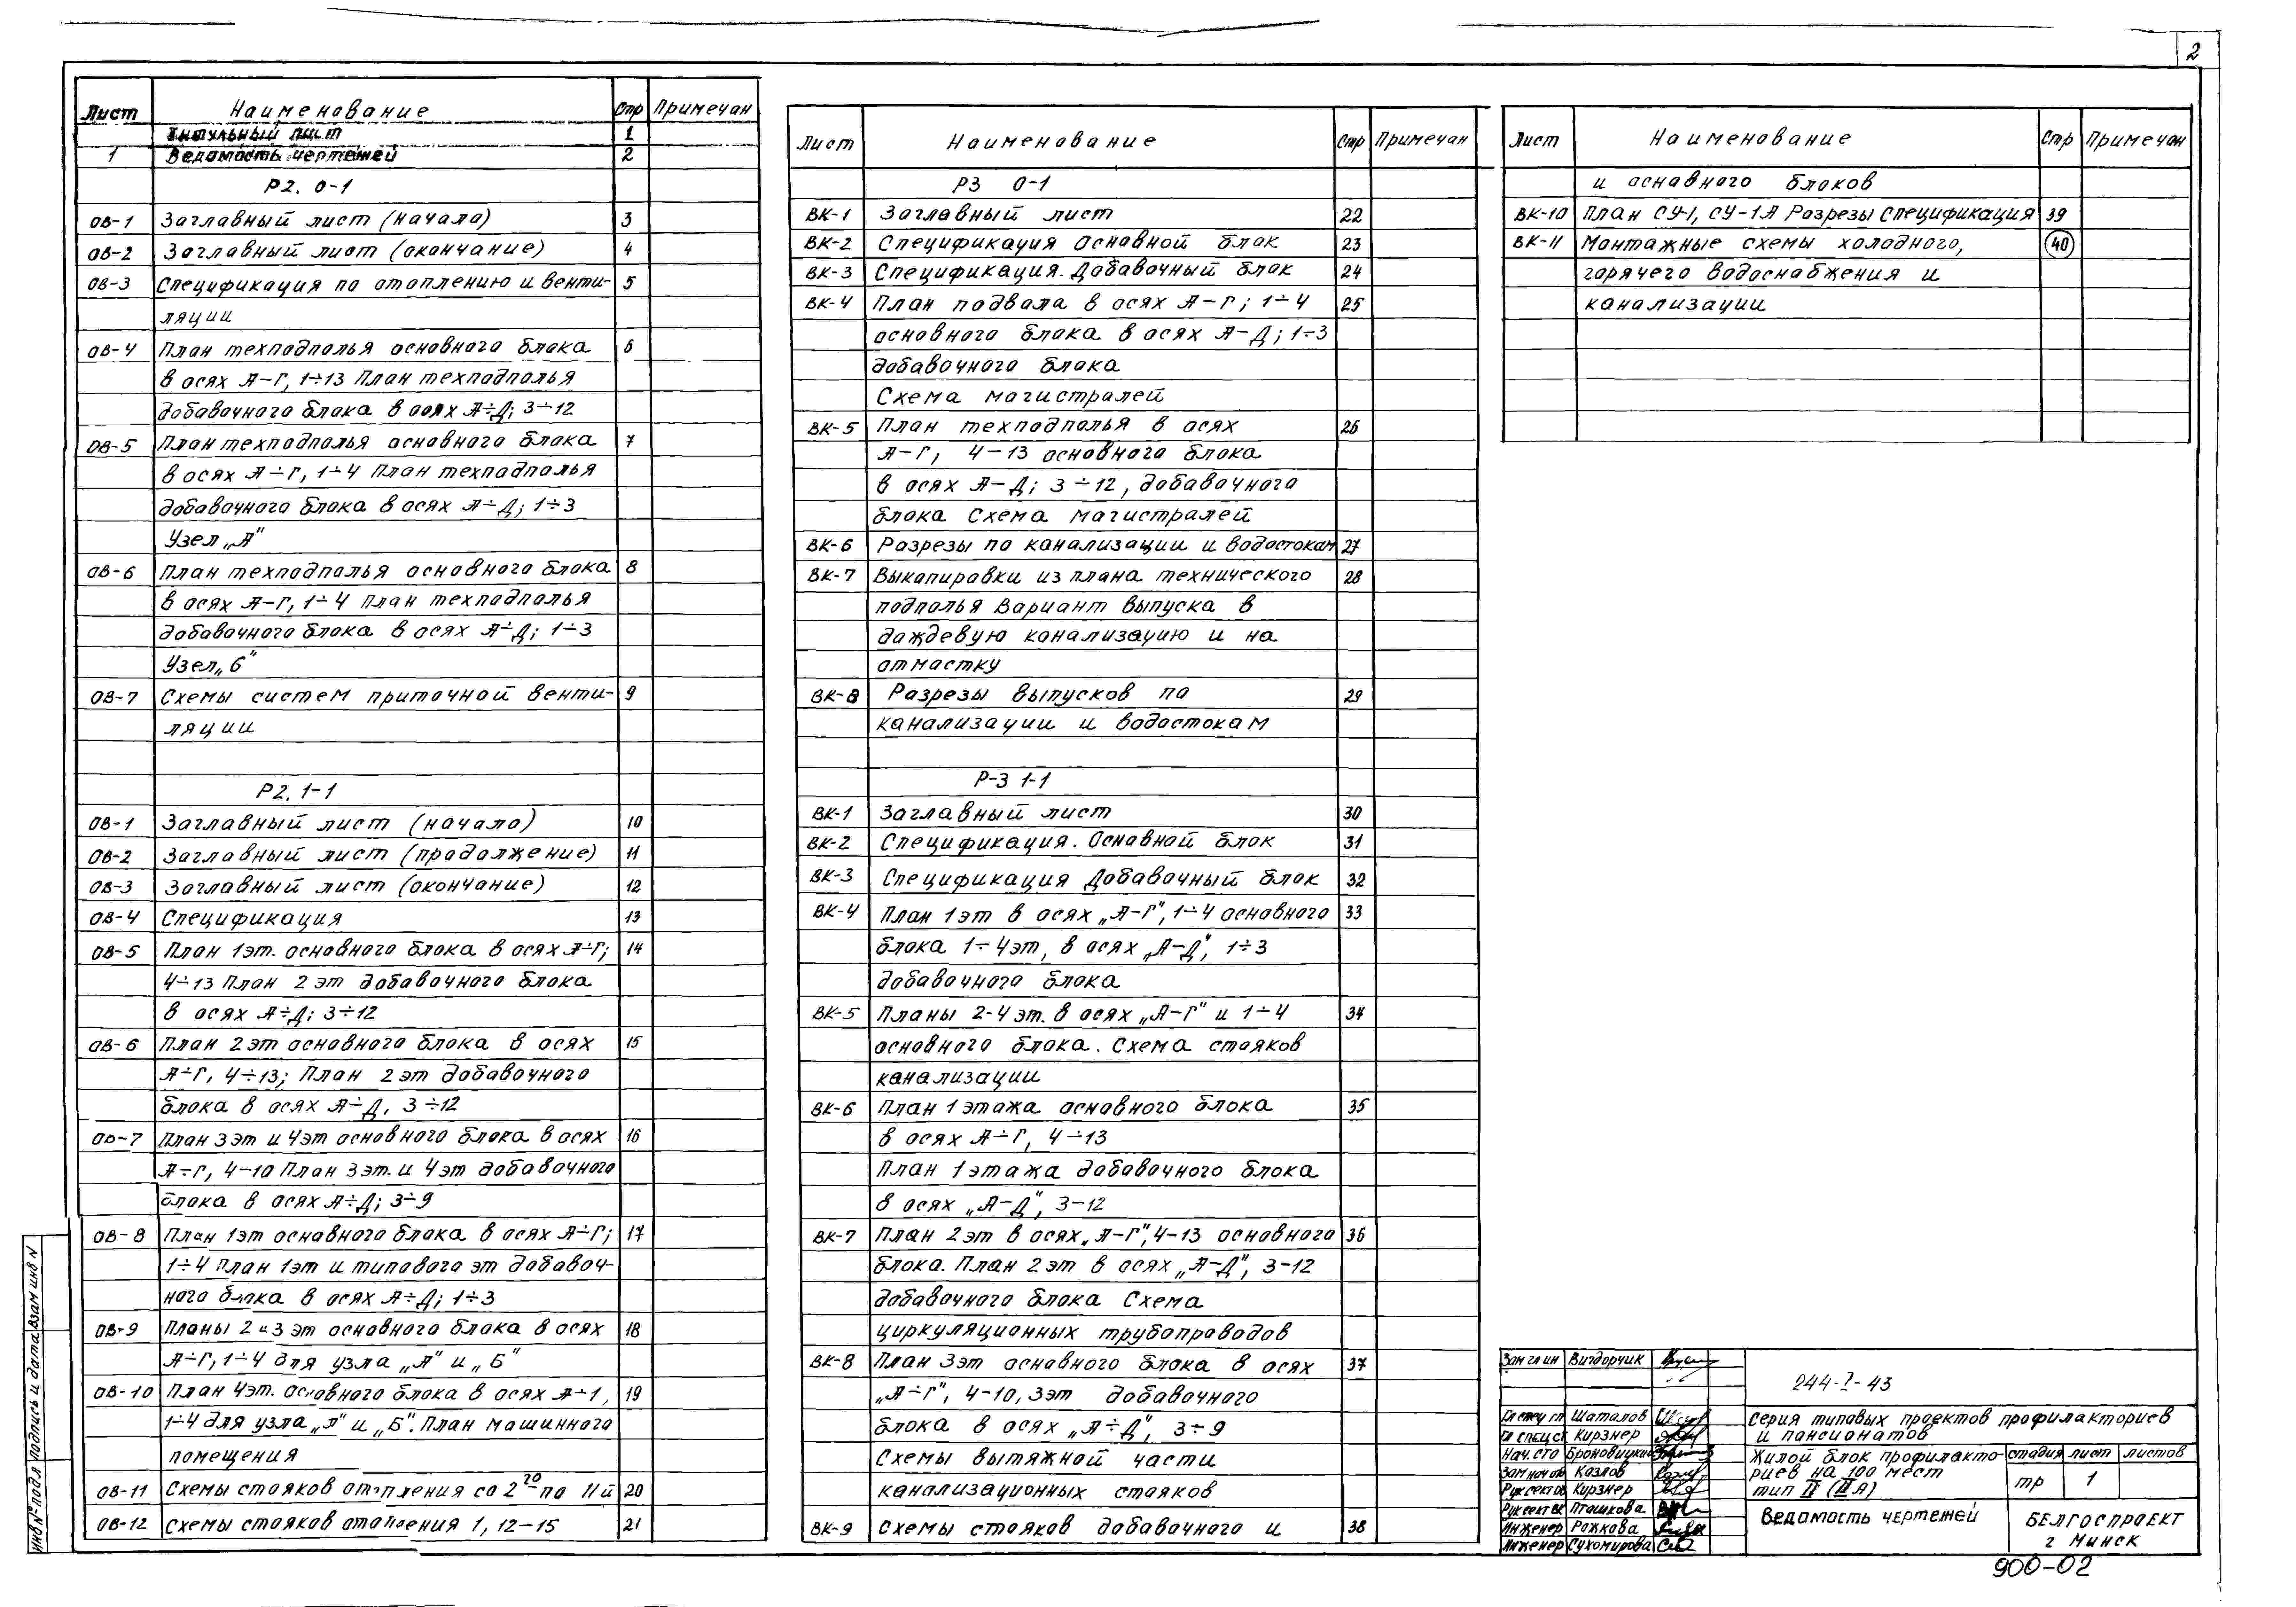 2
Лист Наименование Стр Примечан
Титульный лист 1
1 Ведомость чертежей 2
Р2. 0-1
ОВ-1 Заглавный лист (начало) 3
ОВ-2 Заглавный лист (окончание) 4
ОВ-3 Спецификация по отоплению и венти- 5
ляции
ОВ-4 План техподполья основного блока 6
в осях А-Г, 1÷13 План техподполья
добавочного блока в осях А÷Д; 3÷12
ОВ-5 План техподполья основного блока 7
в осях А÷Г, 1÷4 План техподполья
добавочного блока в осях А÷Д; 1÷3
Узел „А"
ОВ-6 План техподполья основного блока 8
в осях А-Г, 1÷4 План техподполья
добавочного блока в осях А÷Д; 1÷3
Узел „б"
ОВ-7 Схемы систем приточной венти- 9
ляции
Р2. 1-1
ОВ-1 Заглавный лист (начало) 10
ОВ-2 Заглавный лист (продолжение) 11
ОВ-3 Заглавный лист (окончание) 12
ОВ-4 Спецификация 13
ОВ-5 План 1эт. основного блока в осях А÷Г; 14
4÷13 План 2 эт добавочного блока
в осях А÷Д; 3÷12
ОВ-6 План 2эт основного блока в осях 15
А÷Г, 4÷13; План 2эт добавочного
блока в осях А÷Д, 3÷12
ОВ-7 План 3эт и 4эт основного блока в осях 16
А÷Г, 4-10 План 3эт. и 4эт добавочного
блока в осях А÷Д; 3÷9
ОВ-8 План 1эт основного блока в осях А÷Г; 17
1÷4 План 1эт и типового эт добавоч-
ного блока в осях А÷Д; 1÷3
ОВ-9 Планы 2 и 3 эт основного блока в осях 18
А÷Г, 1÷4 для узла „А" и „Б"
ОВ-10 План 4эт. основного блока в осях А÷1, 19
1÷4 для узла „А" и „Б". План машинного
помещения
ОВ-11 Схемы стояков отопления со 2го по 11й 20
ОВ-12 Схемы стояков отопления 1, 12-15 21
Лист Наименование Стр Примечан
Р3 0-1
ВК-1 Заглавный лист 22
ВК-2 Спецификация Основной блок 23
ВК-3 Спецификация. Добавочный блок 24
ВК-4 План подвала в осях А-Г; 1÷4 25
основного блока в осях А-Д; 1÷3
добавочного блока
Схема магистралей
ВК-5 План техподполья в осях 26
А-Г, 4-13 основного блока
в осях А-Д; 3÷12, добавочного
блока Схема магистралей
ВК-6 Разрезы по канализации и водостокам 27
ВК-7 Выкапировки из плана технического 28
подполья Вариант выпуска в
даждевую канализацию и на
отмастку
ВК-8 Разрезы выпусков по 29
канализации и водостокам
Р-3 1-1
ВК-1 Заглавный лист 30
ВК-2 Спецификация. Основной блок 31
ВК-3 Спецификация Добавочный блок 32
ВК-4 План 1эт в осях „А-Г", 1÷4 основного 33
блока 1÷4эт, в осях „А-Д", 1÷3
добавочного блока
ВК-5 Планы 2-4 эт. в осях „А-Г" и 1÷4 34
основного блока. Схема стояков
канализации
ВК-6 План 1 этажа основного блока 35
в осях А÷Г, 4÷13
План 1 этажа добавочного блока
в осях „А-Д", 3-12
ВК-7 План 2эт в осях „А-Г", 4-13 основного 36
блока. План 2эт в осях „А-Д", 3-12
добавочного блока Схема
циркуляционных трубопроводов
ВК-8 План 3эт основного блока в осях 37
„А÷Г", 4-10, 3эт добавочного
блока в осях „А÷Д", 3÷9
Схемы вытяжной части
канализационных стояков
ВК-9 Схемы стояков добавочного и 38
Лист Наименование Стр Примечан
и основного блоков
ВК-10 План СУ-1, СУ-1А Разрезы Спецификация 39
ВК-11 Монтажные схемы холодного, 40
горячего водоснабжения и
канализации
Зам гл ин Вигдорчик
Гл спец гп Шаталов
Гл спец ст Кирзнер
Нач. сто
Зам нач ов Козлов
Рук сект ов Кирзнер
Рук сект вк Пташкова
Инженер Рожкова
Инженер Сухомирова
244-1-43
Серия типовых проектов профилакториев
и пансионатов
Жилой блок профилакто-
риев на 100 мест
тип II (IIА)
стадия лист листов
тр 1
Ведомость чертежей
БЕЛГОСПРОЕКТ
г Минск
900-02
Инв № подл Подпись и дата Взам инв N